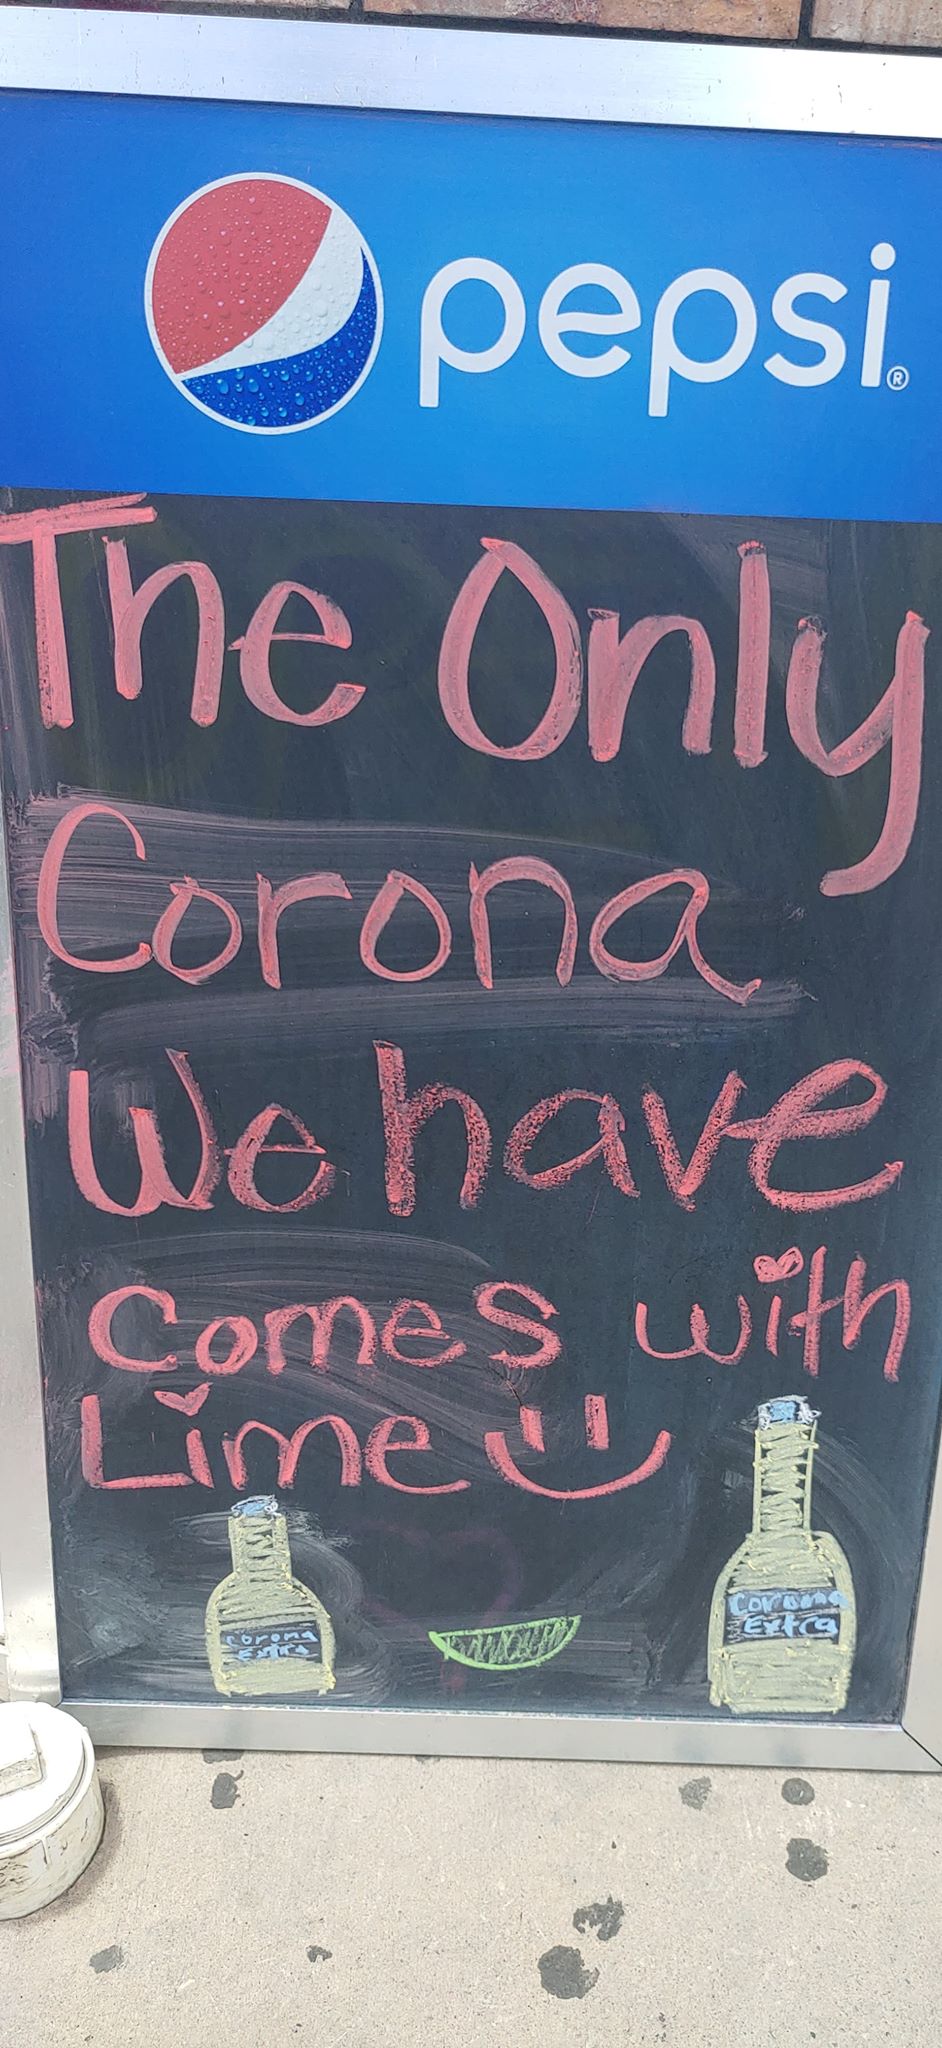 pepsi®
The Only
Corona
We have
Comes with
Lime
Corona
Extra
Corona
Extra